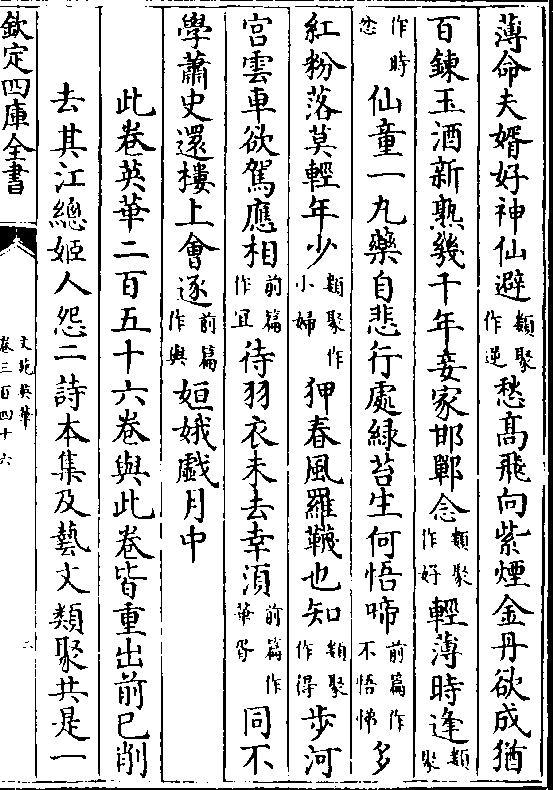 薄命夫婿好神仙避類聚作逆愁髙飛向紫煙金丹欲成猶
百鍊玉酒新熟幾千年妾家邯鄲念類聚作好輕薄時逢類聚
作時忿仙童一丸藥自悲行處緑苔生何悟啼前篇作不悟悌多
紅粉落莫輕年少類聚作小婦狎春風羅韈也知類聚作得步河
宫雲車欲駕應相前篇作宜待羽衣未去幸須前篇作華胥同不
學蕭史還樓上會逐前篇作與姮娥戲月中
此卷英華二百五十六卷與此卷皆重出前已削
去其江總姬人怨二詩本集及藝文類聚共是一
欽定四庫全書
文苑英華
卷三百四十六
二